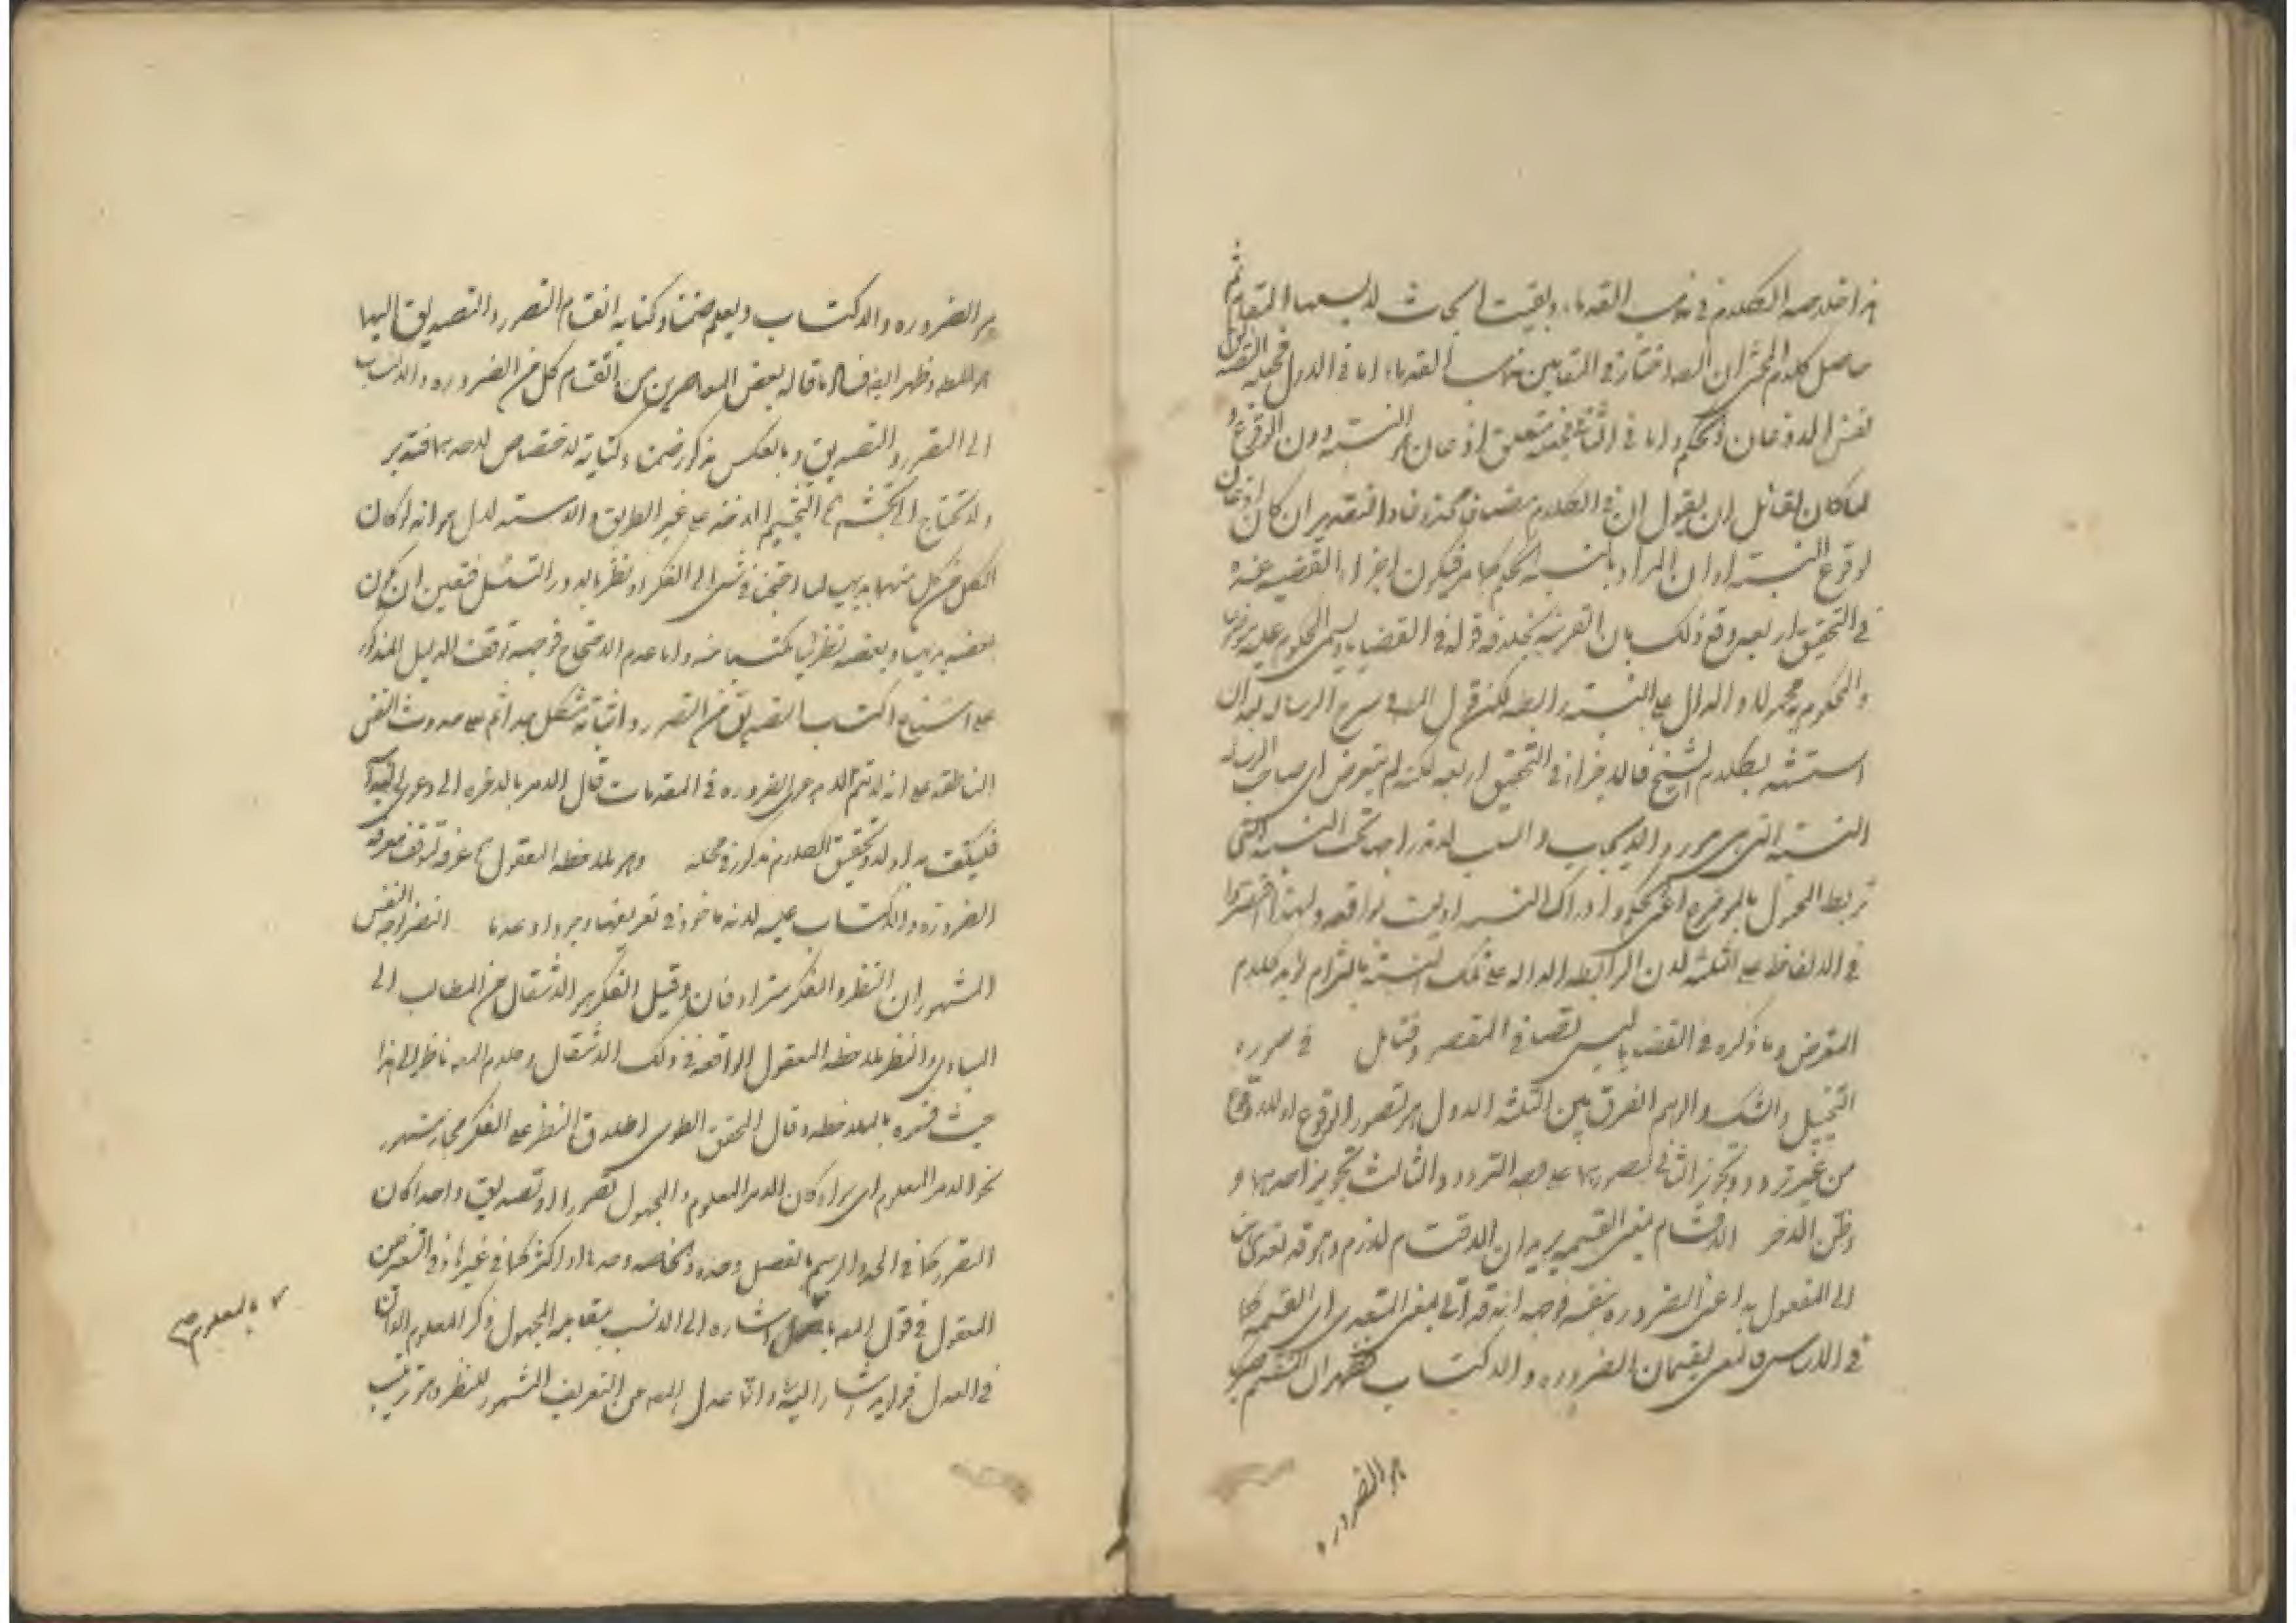 هذا خلاصة الكلام في مذهب القدماء وبقيت ابحاث لا يسعها المقام ثم
حاصل كلام المحشي ان المصـ اختار في المقامين مذهب القدماء اما في الاول فجعله التصديق
نفس الاذعان والحكم واما في الثاني فبجعله متعلق الاذعان هو النسبة دون الوقوع و
لما كان لقائل ان يقول ان في الكلام مضافا محذوفا والتقدير ان كان اذعان
لوقوع النسبة او ان المراد بالنسبة الحكمية كما مر فيكون اجزاء القضية عنده
في التحقيق اربعة دفع ذلك بان القرينة بخلافه قوله في القضايا ويسمى المحكوم عليه موضوعا
والمحكوم به محمولا والدال على النسبة رابطة لكن قول المصـ في شرح الرسالة بعد ان
استشهد بكلام الشيخ فالاجزاء في التحقيق اربعة لكنه لم يتعرض اي صاحب الرسالة
النسبة التي هي مورد الايجاب والسلب لاندراجها تحت النسبة التي
تربط المحمول بالموضوع اعني الحكم وادراك النسبة او ليست بواقعة ولهذا اقتصروا
في الالفاظ على الثلثة لان الرابطة الدالة على تلك النسبة بالتزام يؤيد كلام
المتعرض وما ذكره في القضايا ليس نصا في المقصود فتأمل في صورة
التخييل والشك والوهم الفرق بين الثلثة الاول هو تصور الوقوع او اللاوقوع
من غير تردد وتجويز الثاني تصورهما على وجه التردد والثالث تجويز احدهما و
وظن الآخر الاقتسام بمعنى القسمة يريد ان الاقتسام لازم وهو قد تعدى هنا
الى المفعول به اعني الضرورة بنفسه فوجهه انه قد اتى بمعنى المتعدي اي القسمة كما
في الاساس فالمعنى يقسمان الضرورة والاكتساب فظهر ان المنقسم صريحا
هو الضرورة
هو الضرورة والاكتساب ويعلم ضمنا وكناية انقسام التصور والتصديق اليهما
هو المصـ وظهر ايضا فساد ما قاله بعض المعاصرين من ان انقسام كل من الضرورة والاكتساب
الى التصور والتصديق وبالعكس مذكور ضمنا وكناية لا اختصاص لاحدهما فتدبر
ولا تحتاج الى تجشم التجشيم الاخذ على غير الطريق والاستدلال هو انه لو كان
الكل من كل منهما بديهيا لما احتجنا في شيء الى الفكر او نظريا لدار او تسلسل فتعين ان يكون
بعضه بديهيا وبعضه نظريا مكتسبا منه واما عدم الاحتياج فوجهه توقف الدليل المذكور
على امتناع اكتساب التصديق من التصور واثباته مشكل جدا ثم على حدوث النفس
الناطقة على انه لا يتم الا بدعوى الضرورة في المقدمات فآل الامر بالاخرة الى دعوى البداهة
فليكتف به اولا وتحقيق الكلام مذكور في محله وهو ملاحظة المعقول عرفه لتوقف معرفة
الضرورة والاكتساب عليه لانه مأخوذ في تعريفهما وجودا وعدما النظر توجه النفس
المشهور ان النظر والفكر مترادفان وقيل الفكر هو الانتقال من المطالب الى
المبادي والنظر ملاحظة المعقول الواقعة في ذلك الانتقال وكلام المصـ ناظر الى هذا
حيث فسره بالملاحظة وقال المحقق الطوسي اطلاق النظر على الفكر مجاز مشهور
نحو الامر المعلوم اي سواء كان الامر المعلوم والمجهول تصورا او تصديقا واحدا كان
التصور كما في الحد والرسم بالفصل وحده والخاصة وحدها او اكثر كما في غيرهما وفي التعرض
المعقول في قول المصـ اشارة الى الانسب بمقابلة المجهول ذكر المعلوم الا ان
في العدول فوايد يشار اليها وانما عدل المصـ عن التعريف المشهور للنظر وهو ترتيب
بالمعلوم صح